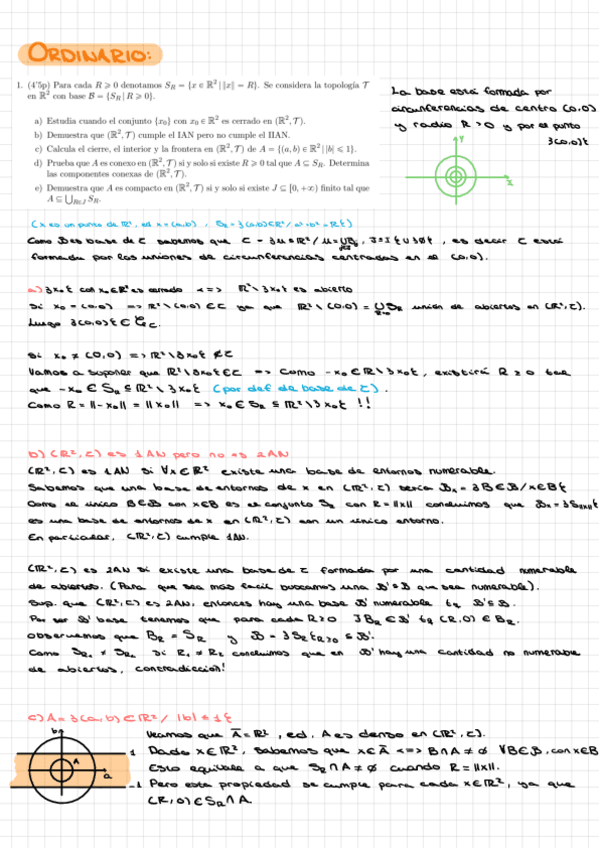 ORDINARIO:
1. (4'5p) Para cada R ⩾ 0 denotamos S_R = {x ∈ ℝ² | ‖x‖ = R}. Se considera la topología 𝒯
en ℝ² con base ℬ = {S_R | R ⩾ 0}.
a) Estudia cuando el conjunto {x₀} con x₀ ∈ ℝ² es cerrado en (ℝ², 𝒯).
b) Demuestra que (ℝ², 𝒯) cumple el IAN pero no cumple el IIAN.
c) Calcula el cierre, el interior y la frontera en (ℝ², 𝒯) de A = {(a, b) ∈ ℝ² | |b| ⩽ 1}.
d) Prueba que A es conexo en (ℝ², 𝒯) si y solo si existe R ⩾ 0 tal que A ⊆ S_R. Determina
las componentes conexas de (ℝ², 𝒯).
e) Demuestra que A es compacto en (ℝ², 𝒯) si y solo si existe J ⊆ [0, +∞) finito tal que
A ⊆ ⋃_{R∈J} S_R.
La base está formada por
circunferencias de centro (0,0)
y radio R > 0 y por el punto
{(0,0)}
Y
X
(x es un punto de ℝ², ed x = (a,b) , S_R = {(a,b) ∈ ℝ² / a² + b² = R})
Como B es base de τ sabemos que
formada por las uniones de circunferencias centradas en el (0,0).
a) {x₀} con x₀ ∈ ℝ² es cerrado <=> ℝ² \ {x₀} es abierto
Si x₀ = (0,0) => ℝ² \ (0,0) ∈ τ ya que ℝ² \ (0,0) = ⋃ S_R unión de abiertos en (ℝ², τ).
Luego {(0,0)} ∈ C_τ.
Si x₀ ≠ (0,0) => ℝ² \ {x₀} ∉ τ
Vamos a suponer que ℝ² \ {x₀} ∈ τ => Como -x₀ ∈ ℝ \ {x₀}, existirá R ≥ 0 tal
que -x₀ ∈ S_R ⊆ ℝ² \ {x₀} (por def de base de τ).
Como R = ||-x₀|| = ||x₀|| => x₀ ∈ S_R ⊆ ℝ² \ {x₀} !!
b) (ℝ², τ) es 1AN pero no es 2AN
(ℝ², τ) es 1AN si ∀x ∈ ℝ² existe una base de entornos numerable.
Sabemos que una base de entornos de x en (ℝ², τ) sería B_x = {B ∈ B / x ∈ B}
Como el único B ∈ B con x ∈ B es el conjunto S_R con R = ||x|| concluimos que B_x = {S_||x||}
es una base de entornos de x en (ℝ², τ) con un único entorno.
En particular, (ℝ², τ) cumple 1AN.
(ℝ², τ) es 2AN si existe una base de τ formada por una cantidad numerable
de abiertos. (Para que sea más facil buscamos una B' ⊆ B que sea numerable).
Sup. que (ℝ², τ) es 2AN, entonces hay una base B' numerable tq B' ⊆ B.
Por ser B' base tenemos que para cada R ≥ 0 ∃ B_R ∈ B' tq (R,0) ∈ B_R.
Observemos que B_R = S_R y B = {S_R}_{R≥0} ⊆ B'.
Como S_R₁ ≠ S_R₂ si R₁ ≠ R₂ concluimos que en B' hay una cantidad no numerable
de abiertos, contradicción!
c) A = {(a,b) ∈ ℝ² / |b| ≤ 1}
b
A
a
1
-1
Veamos que Ā = ℝ², ed, A es denso en (ℝ², τ).
Dado x ∈ ℝ², sabemos que x ∈ Ā <=> B ∩ A ≠ ∅ ∀B ∈ B, con x ∈ B
Esto equivale a que S_R ∩ A ≠ ∅ cuando R = ||x||.
Pero esta propiedad se cumple para cada x ∈ ℝ², ya que
(R,0) ∈ S_R ∩ A.